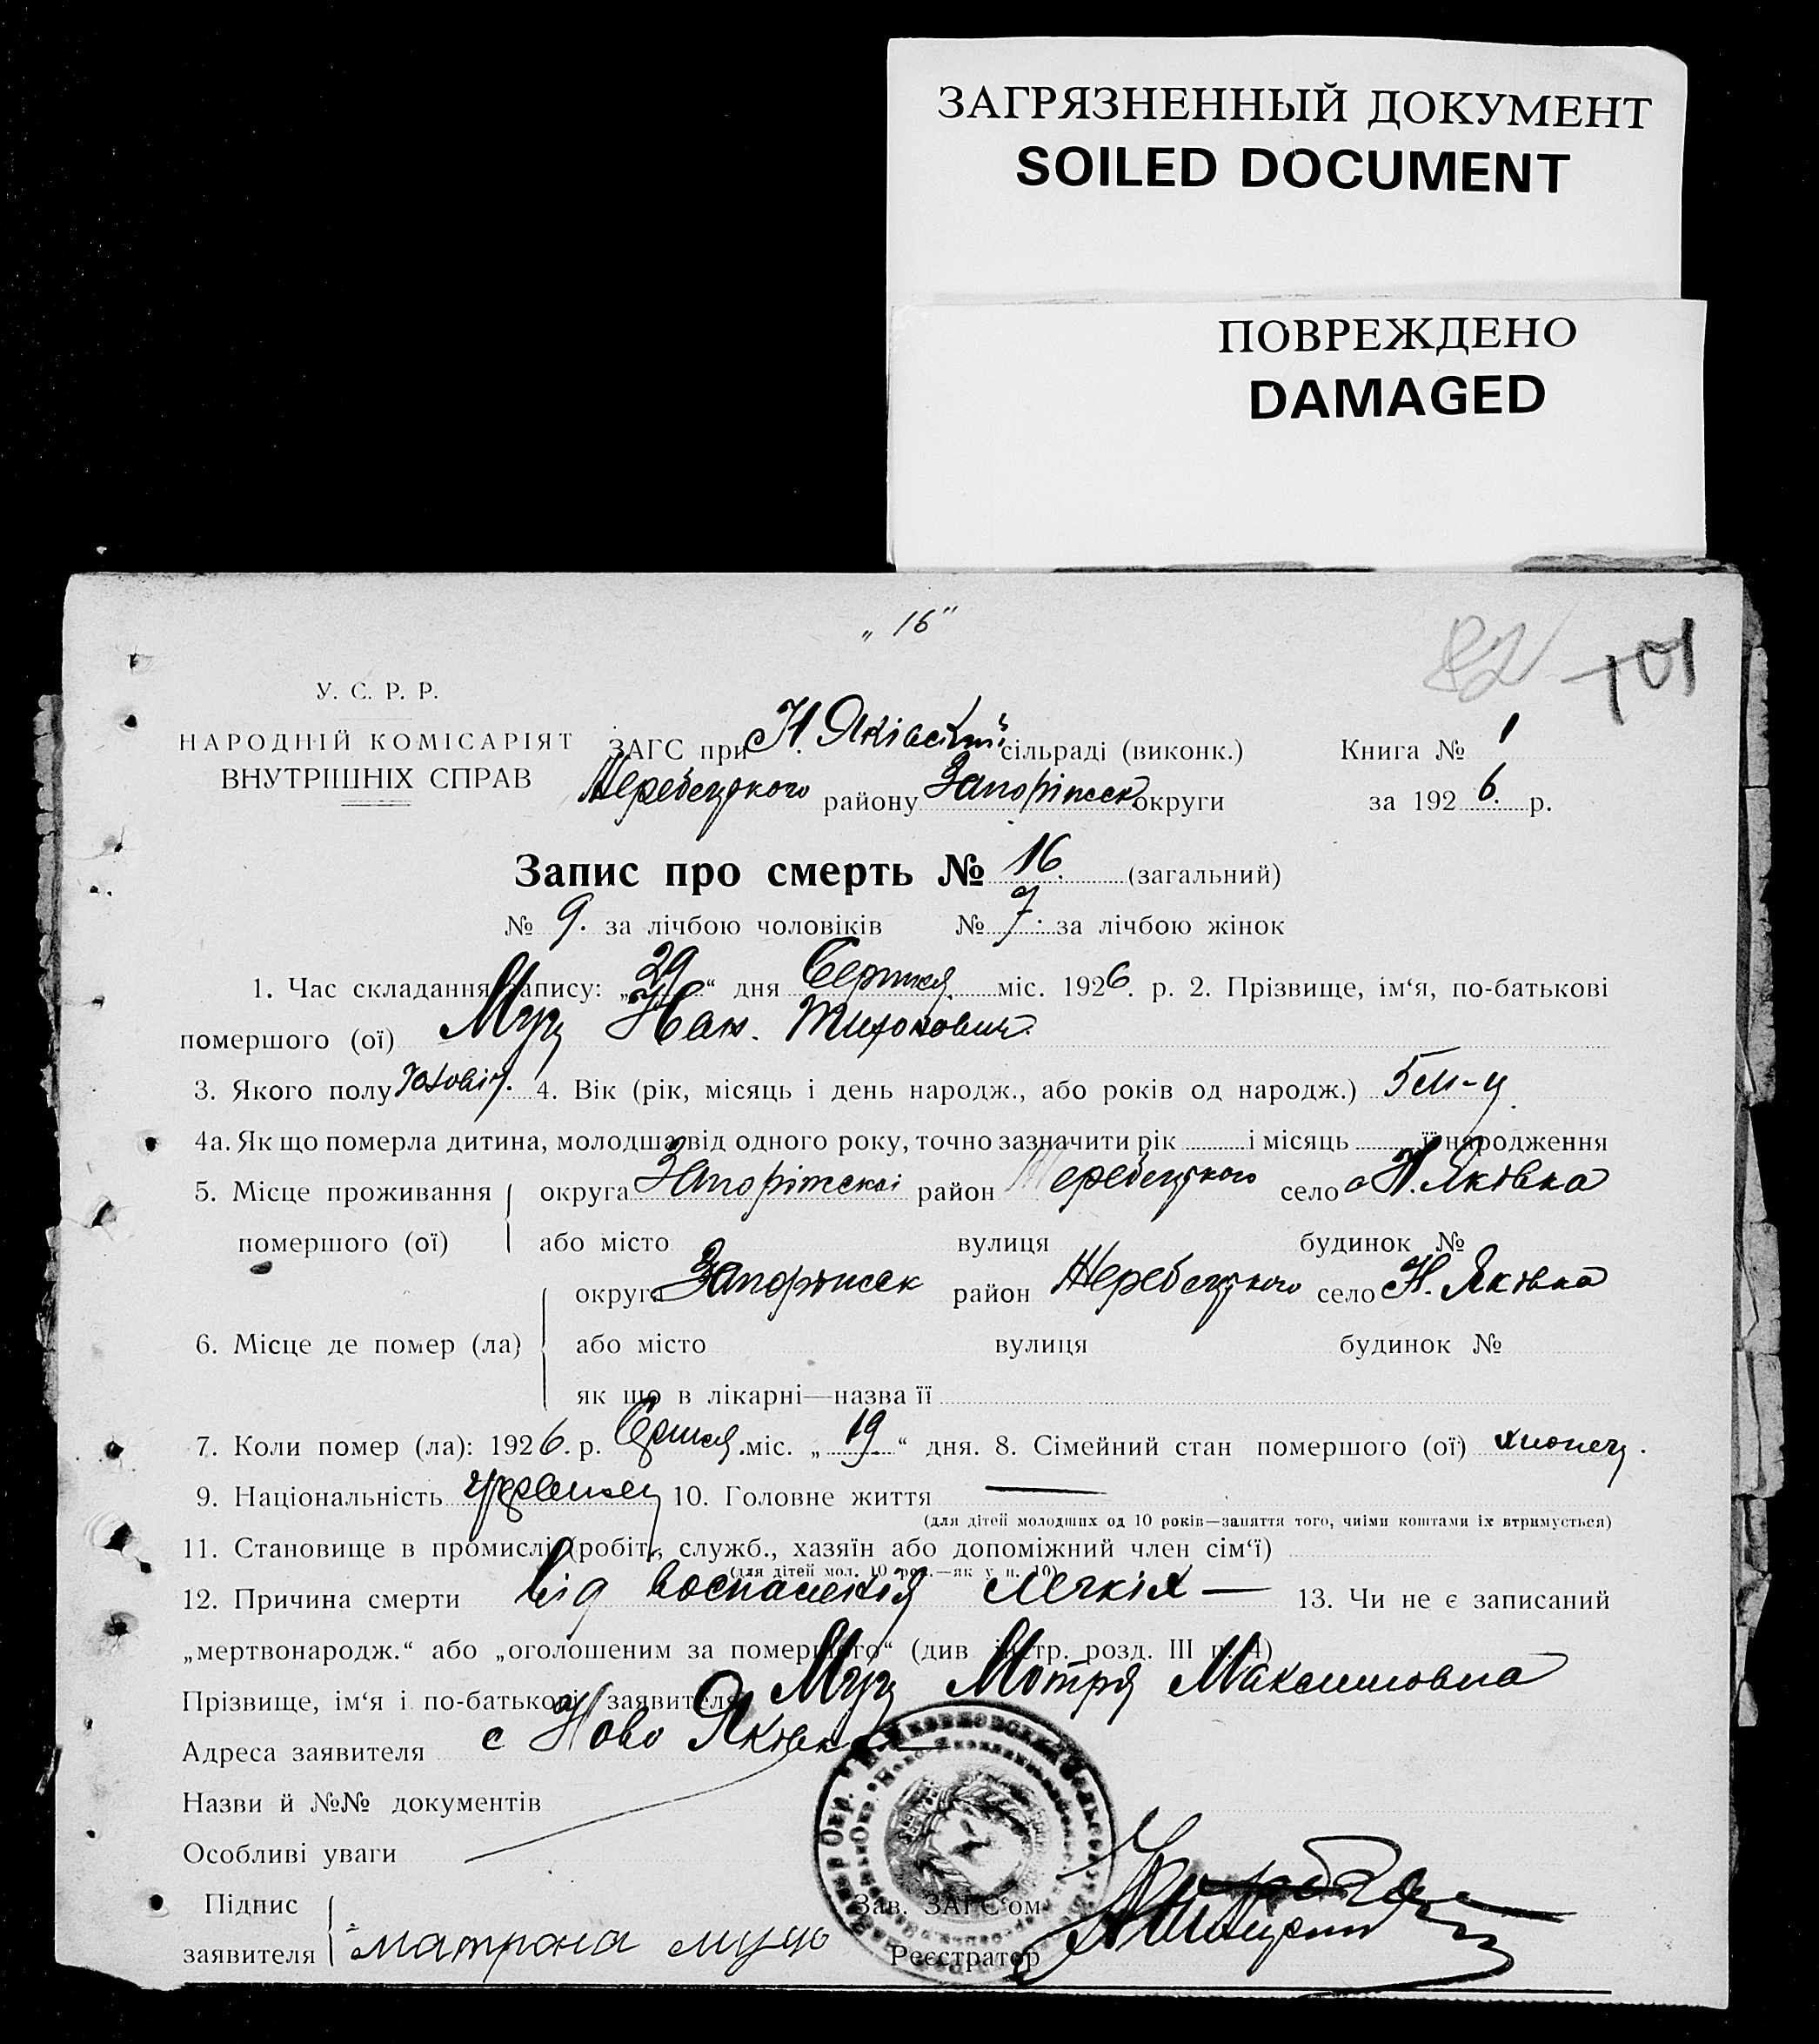 ЗАГРЯЗНЕННЫЙ ДОКУМЕНТ
SOILED DOCUMENT
ПОВРЕЖДЕНО
DAMAGED
„16"
82 101
У. С. Р. Р.
НАРОДНІЙ КОМІСАРІЯТ
ВНУТРІШНІХ СПРАВ
ЗАГС при Н. Яківській сільраді (виконк.)
Книга № 1
Жеребецького району Запоріжск округи
за 1926. р.
Запис про смерть № 16. (загальний)
№ 9. за лічбою чоловіків № 7. за лічбою жінок
1. Час складання запису: „29“ дня Серпня міс. 1926. р. 2. Прізвище, ім‘я, по-батькові
померлого (ої) Муц Іван. Тихонович
3. Якого полу Чоловіч. 4. Вік (рік, місяць і день народж., або років од народж.) 5 м-ц
4а. Як що померла дитина, молодша від одного року, точно зазначити рік і місяць її народження
5. Місце проживання округа Запоріжскої район Жеребецького село Н. Яківка
помершого (ої) або місто вулиця будинок №
округа Запоріжск район Жеребецького село Н. Яківка
6. Місце де помер (ла) або місто вулиця будинок №
як що в лікарні—назва її
7. Коли помер (ла): 1926. р. Серпня міс. „19“ дня. 8. Сімейний стан помершого (ої) хлопець.
9. Національність Українец 10. Головне життя —
(для дітей молодших од 10 років—заняття того, чиїми коштами їх втримується)
11. Становище в промислі (робіт., служб., хазяїн або допоміжний член сім‘ї)
(для дітей мол. 10 рок.—як у п. 10)
12. Причина смерти від воспаленія легкіх — 13. Чи не є записаний
„мертвонародж.“ або „оголошеним за помершого“ (див інстр. розд. III п. 4)
Прізвище, ім‘я і по-батькові заявителя Муц Мотря Максимовна
Адреса заявителя с Ново Яківка
Назви й №№ документів
Особливі уваги
Підпис
заявителя Матрона муць
Зав. ЗАГС‘ом
Реєстратор